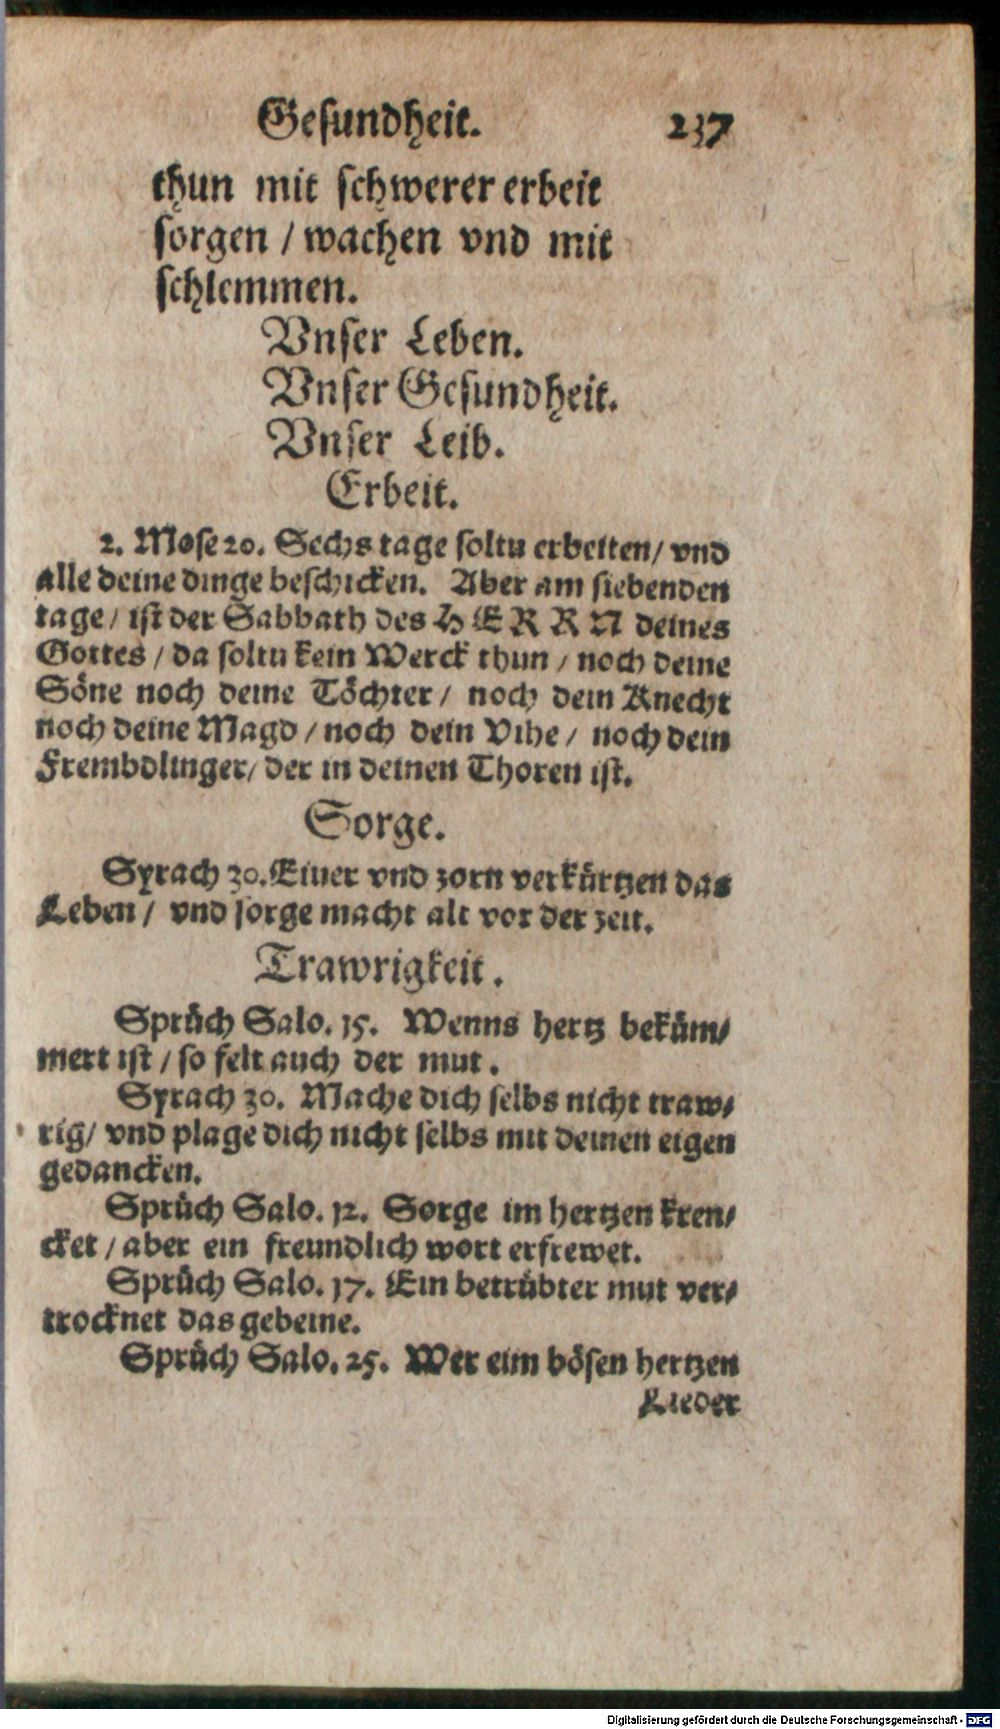 Gesundheit. 237
thun mit schwerer erbeit
sorgen / wachen vnd mit
schlemmen.
Vnser Leben.
Vnser Gesundheit.
Vnser Leib.
Erbeit.
2. Mose 20. Sechs tage soltu erbeiten/ vnd
alle deine dinge beschicken. Aber am siebenden
tage / ist der Sabbath des HERRN deines
Gottes / da soltu kein Werck thun / noch deine
Söne noch deine Töchter / noch dein Knecht
noch deine Magd / noch dein Vihe / noch dein
Frembdlinger/ der in deinen Thoren ist.
Sorge.
Syrach 30. Eiuer vnd zorn verkürtzen das
Leben / vnd sorge macht alt vor der zeit.
Trawrigkeit.
Sprüch Salo. 15. Wenns hertz beküm⸗
mert ist / so felt auch der mut.
Syrach 30. Mache dich selbs nicht traw⸗
rig/ vnd plage dich nicht selbs mit deinen eigen
gedancken.
Sprüch Salo. 12. Sorge im hertzen kren⸗
cket / aber ein freundlich wort erfrewet.
Sprüch Salo. 17. Ein betrübter mut ver⸗
trocknet das gebeine.
Sprüch Salo. 25. Wer eim bösen hertzen
Lieder
Digitalisierung gefördert durch die Deutsche Forschungsgemeinschaft - DFG